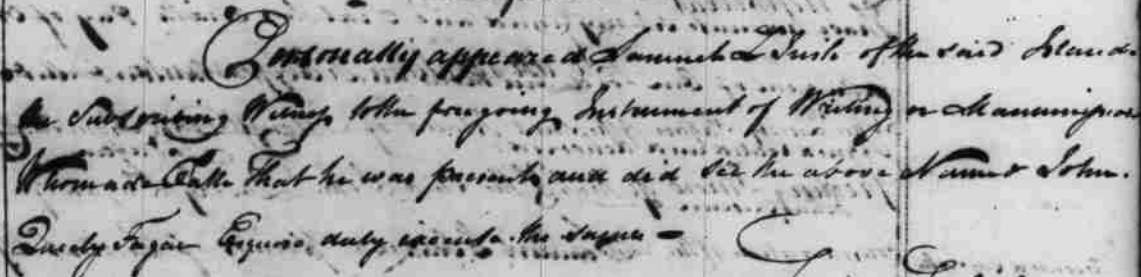 Personally appeared Samuel L Lusk of the said Island
the Subscribing Witness to the foregoing Instrument of Writing or Manumission
Who made Oath That he was present and did see the above Named John
Fagan Esquire duly execute the same